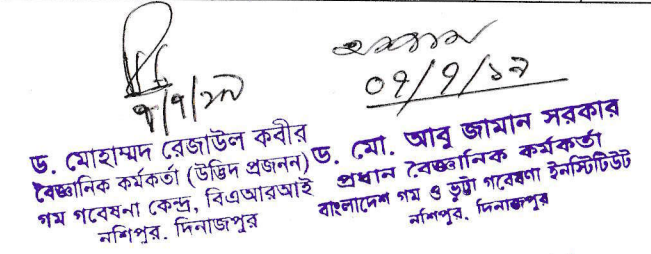 ৭/৭/১৯
০৭/৭/১৯
ড. মোহাম্মদ রেজাউল কবীর
বৈজ্ঞানিক কর্মকর্তা (উদ্ভিদ প্রজনন)
গম গবেষনা কেন্দ্র, বিএআরআই
নশিপুর, দিনাজপুর
ড. মো. আবু জামান সরকার
প্রধান বৈজ্ঞানিক কর্মকর্তা
বাংলাদেশ গম ও ভুট্টা গবেষণা ইনস্টিটিউট
নশিপুর, দিনাজপুর